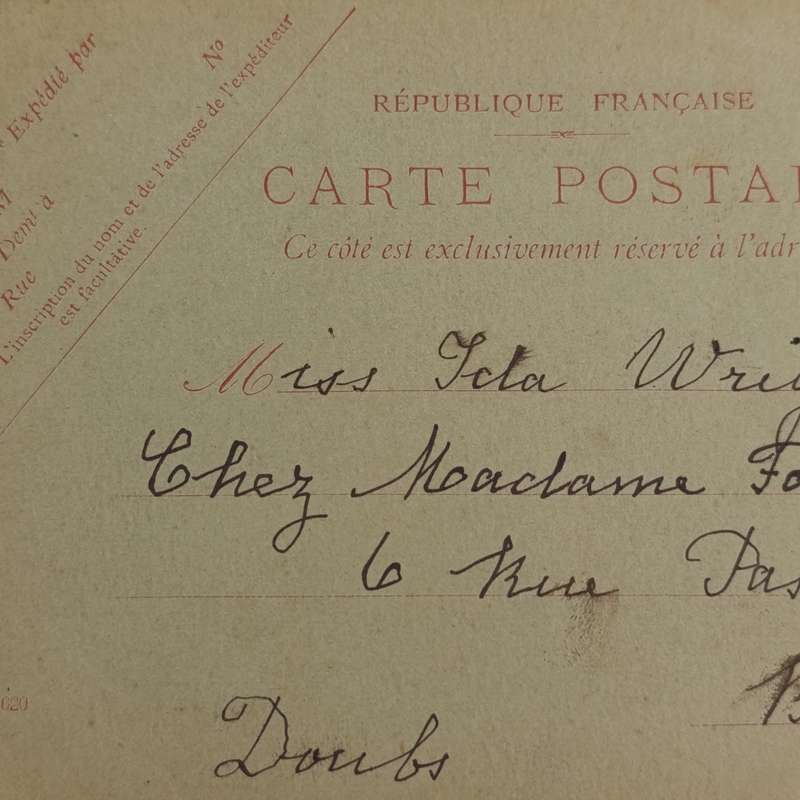 Expédié par
No
Demt à
Rue
L'inscription du nom et de l'adresse de l'expéditeur
est facultative.
RÉPUBLIQUE FRANÇAISE
CARTE POSTA
Ce côté est exclusivement réservé à l'adr
Miss Ida Wri
Chez Madame
6 Rue Pas
620
Doubs